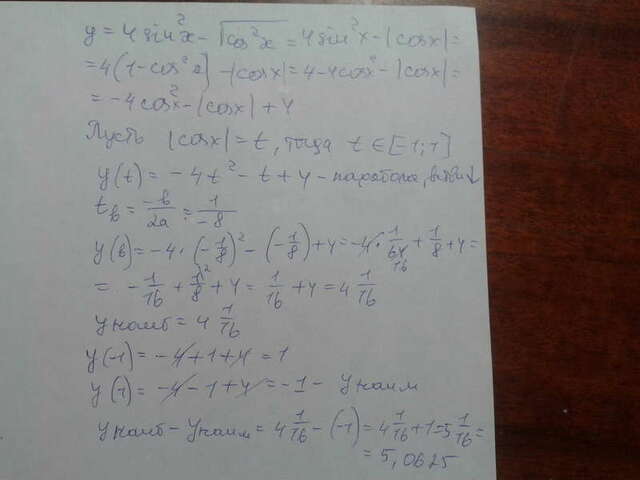 y = 4 sin²x - √cos²x = 4 sin²x - |cosx| =
= 4(1 - cos²x) - |cosx| = 4 - 4cos² - |cosx| =
= -4cos²x - |cosx| + 4
Пусть |cosx| = t, тогда t ∈ [-1; 1]
y(t) = -4t² - t + 4 - парабола, ветви ↓
tв = -b/2a = 1/-8
y(в) = -4 · (-1/8)² - (-1/8) + 4 = -4 · 1/64 16 + 1/8 + 4 =
= -1/16 + 1/8 ² + 4 = 1/16 + 4 = 4 1/16
y наиб = 4 1/16
y(-1) = -4 + 1 + 4 = 1
y(1) = -4 - 1 + 4 = -1 - y наим
y наиб - y наим = 4 1/16 - (-1) = 4 1/16 + 1 = 5 1/16 =
= 5,0625